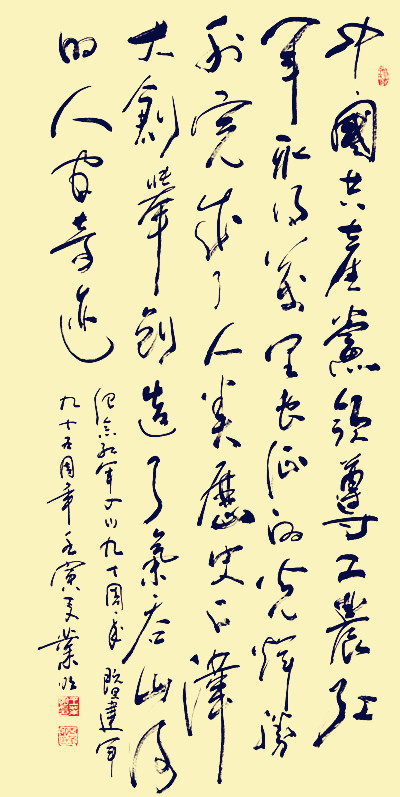 中國共產黨領導工農紅
軍取得萬里長征的光輝勝
利完成了人类歷史偉
大創舉創造了氣吞山河
的人间奇迹
纪念紅軍九十周年暨建軍
九十五周年壬寅夏業